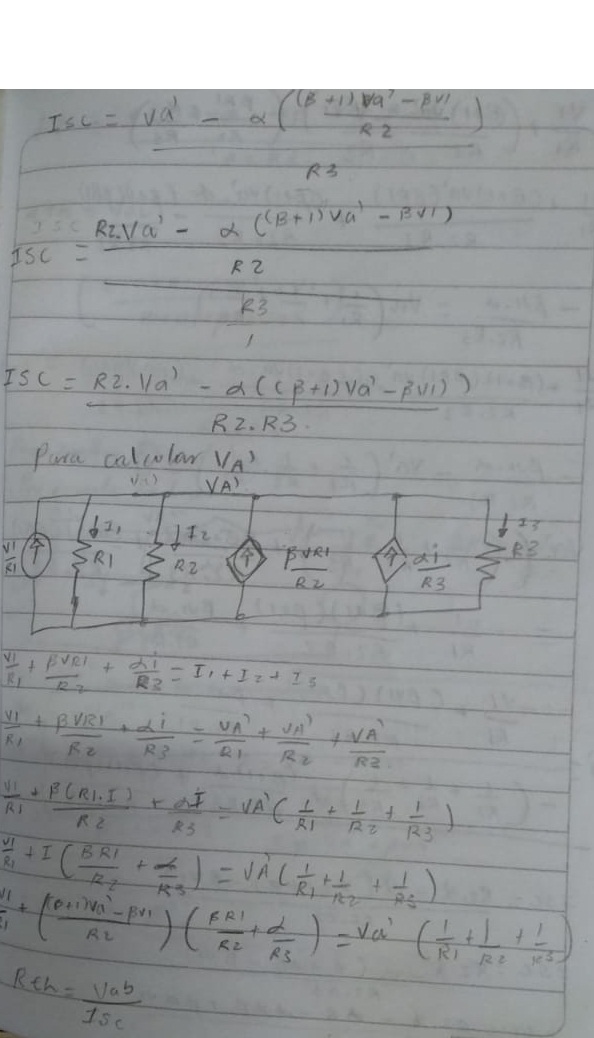 Isc = Va' - α((β+1)Va' - βV1 / R2) / R3
ISC = R2.Va' - α((β+1)Va' - βV1) / R2 / R3 / 1
ISC = R2.Va' - α((β+1)Va' - βV1)) / R2.R3.
Para calcular VA'
VA'
V1/R1 I1 R1 I2 R2 βVR1/R2 αi/R3 I3 R3
V1/R1 + βVR1/R2 + αi/R3 = I1 + I2 + I3
V1/R1 + βVR1/R2 + αi/R3 = VA'/R1 + VA'/R2 + VA'/R3
V1/R1 + β(R1.I)/R2 + αI/R3 = VA'(1/R1 + 1/R2 + 1/R3)
V1/R1 + I(βR1/R2 + α/R3) = VA'(1/R1 + 1/R2 + 1/R3)
V1/R1 + ((β+1)Va' - βV1 / R2)(βR1/R2 + α/R3) = Va'(1/R1 + 1/R2 + 1/R3)
Rth = Vab/Isc